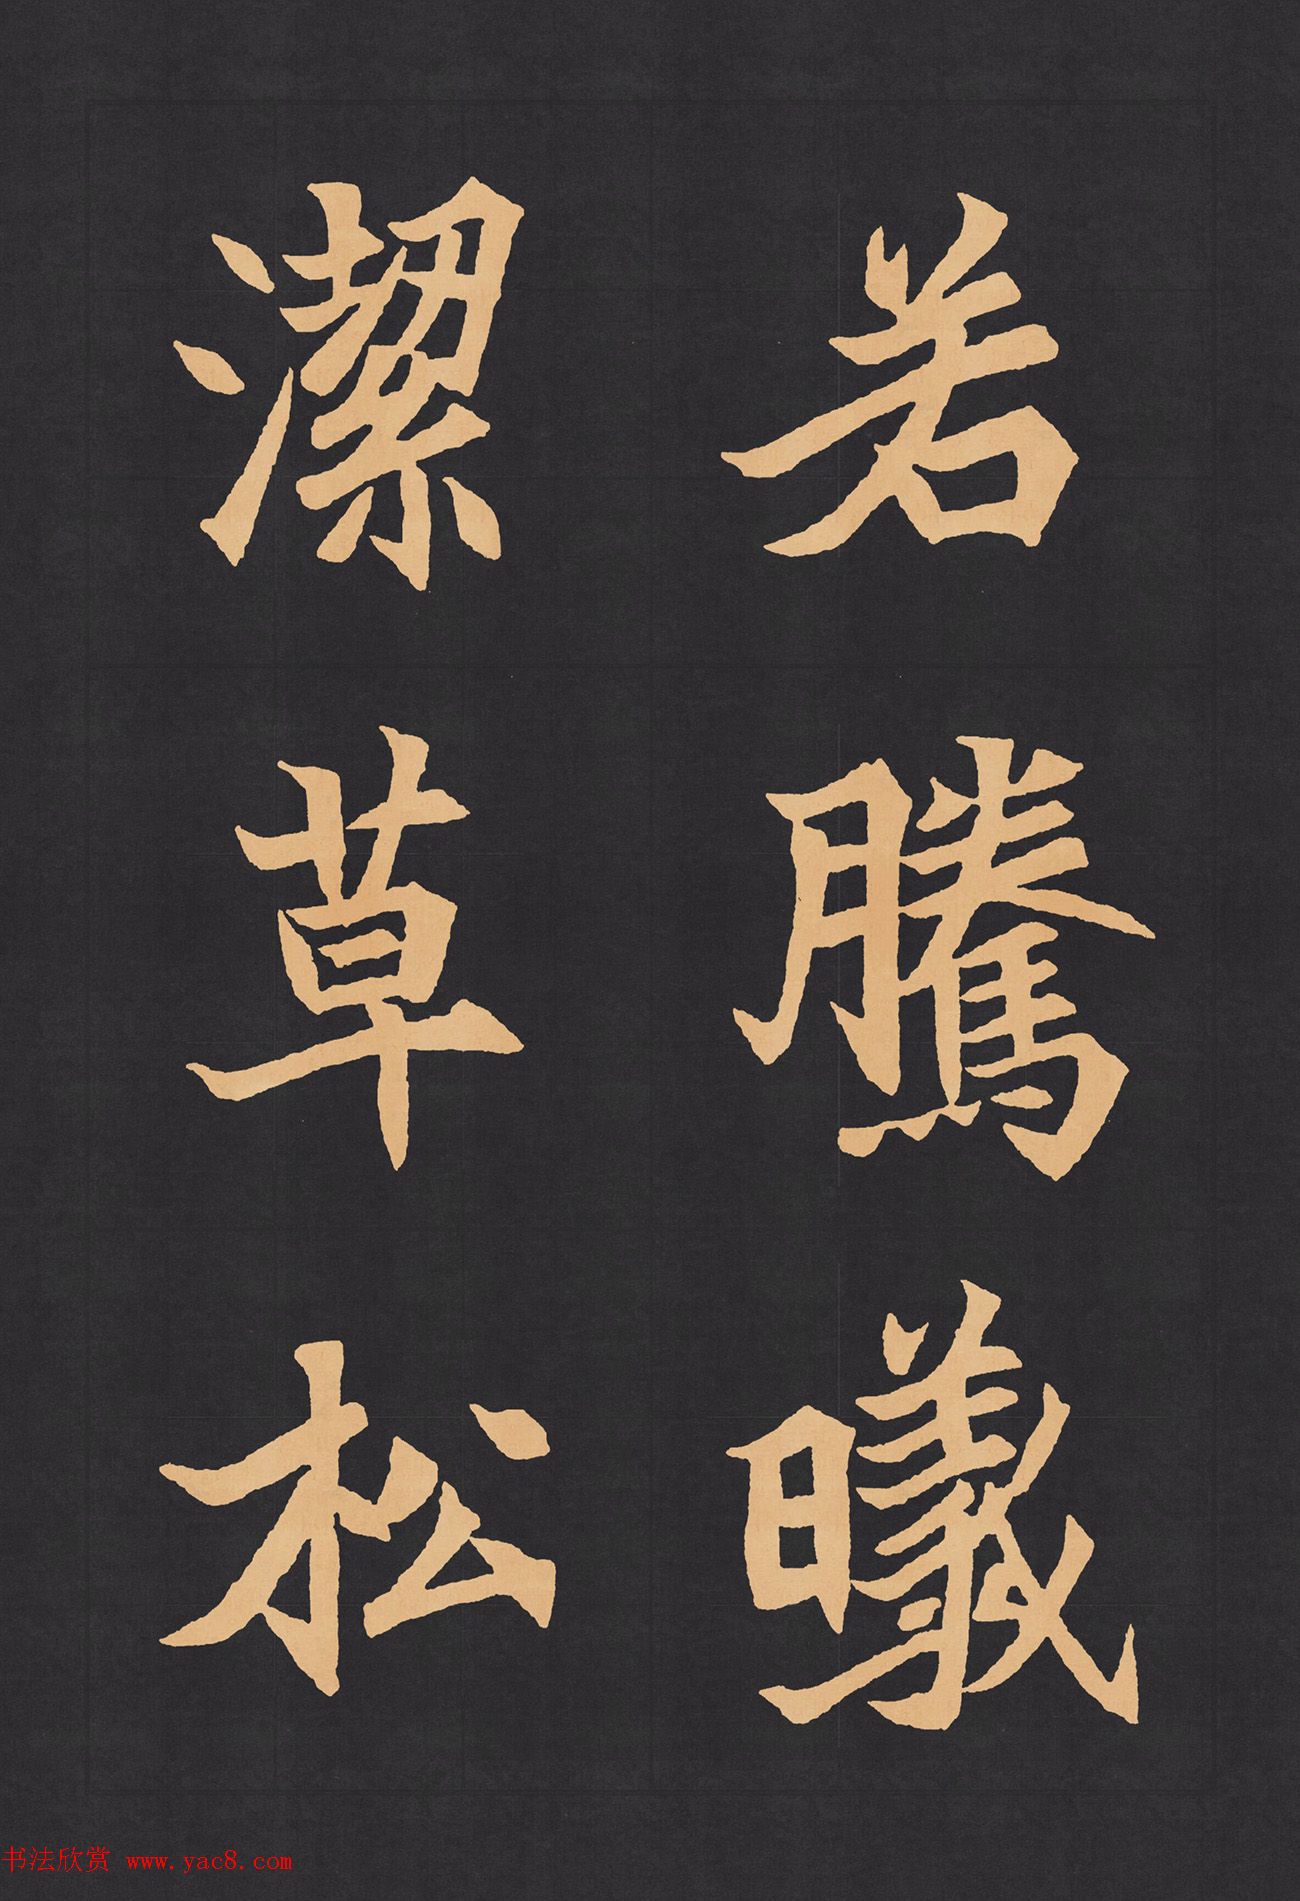 若騰曦
潔草松
书法欣赏 www.yac8.com